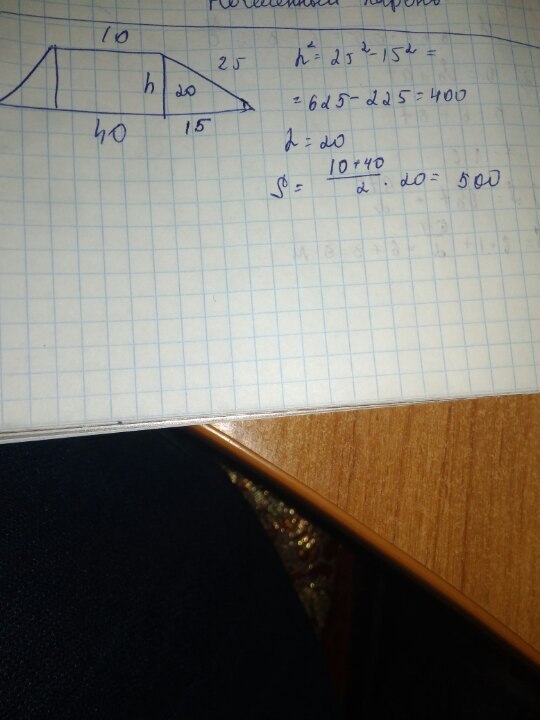 10
25
h 20
40
15
h² = 25² - 15² =
= 625 - 225 = 400
h = 20
S = 10 + 40 / 2 · 20 = 500